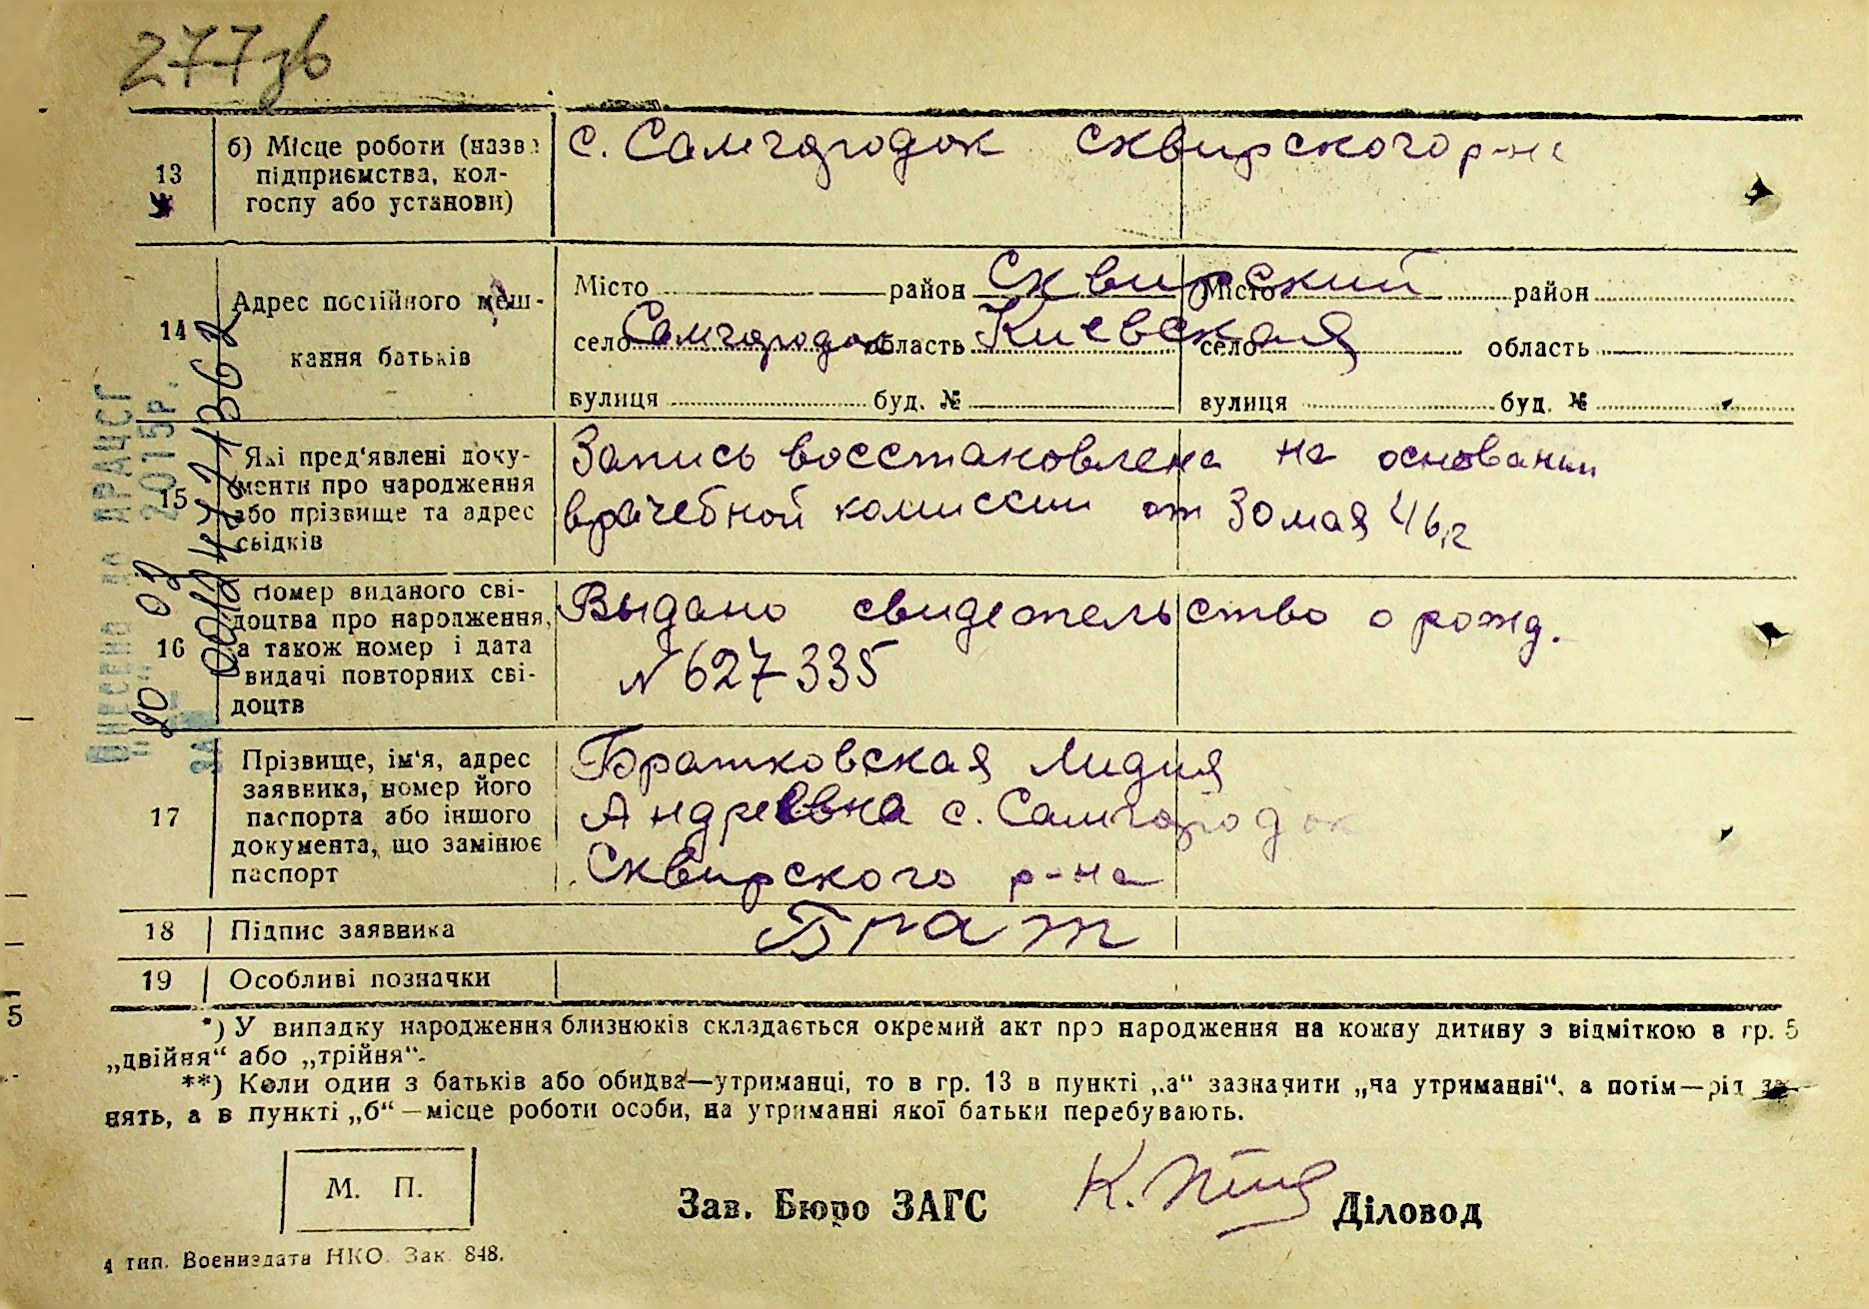 277зв
13
б) Місце роботи (назва
підприємства, кол-
госпу або установи)
с. Самгородок сквирского р-на
14
Адрес постійного меш-
кання батьків
Місто район Сквирский Місто район
село Самгородок область Киевская село область
вулиця буд. № вулиця буд. №
15
Які пред'явлені доку-
менти про народження
або прізвище та адрес
свідків
Запись восстановлена на основании
врачебной комиссии от 30 мая 46 г
16
Номер виданого сві-
доцтва про народження,
а також номер і дата
видачі повторних сві-
доцтв
Выдано свидетельство о рожд.
№ 627335
17
Прізвище, ім'я, адрес
заявника, номер його
паспорта або іншого
документа, що замінює
паспорт
Братковская Лидия
Андреевна с. Самгородок
Сквирского р-на
18 Підпис заявника Брат
19 Особливі позначки
*) У випадку народження близнюків складається окремий акт про народження на кожну дитину з відміткою в гр. 5
„двійня“ або „трійня“.
**) Коли один з батьків або обидва—утриманці, то в гр. 13 в пункті „а“ зазначити „на утриманні“, а потім—рід за-
нять, а в пункті „б“—місце роботи особи, на утриманні якої батьки перебувають.
М. П.
Зав. Бюро ЗАГС Діловод
4 тип. Воениздата НКО. Зак. 848.
Внесено до ДРАЦСГ
20 03 2015р.
за
5